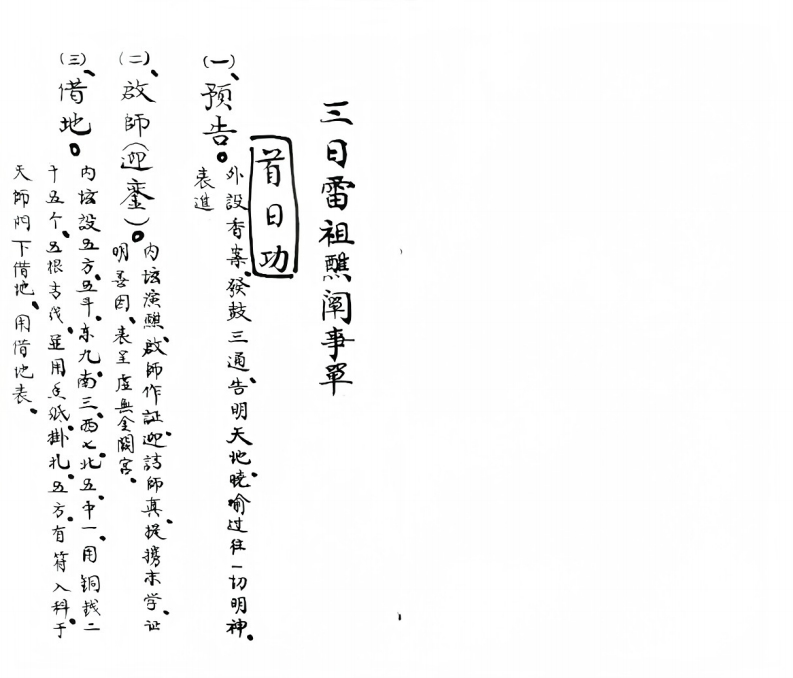 三日雷祖醮闡事單
首日功
(一)、預告。
外設香案、發鼓三通、告明天地、曉喻过往一切明神、
表進
(二)、啟師(迎鑾)。
内坛演醮、啟師作証、迎請師真、提携末学、証
明善因、表呈虚無金闕宮、
(三)、借地。
内坛設五方五斗、东九、南三、西七、北五、中一、用銅銭二
十五个、五根青代、並用長紙掛扎、五方有符入科、于
天師門下借地、用借地表、